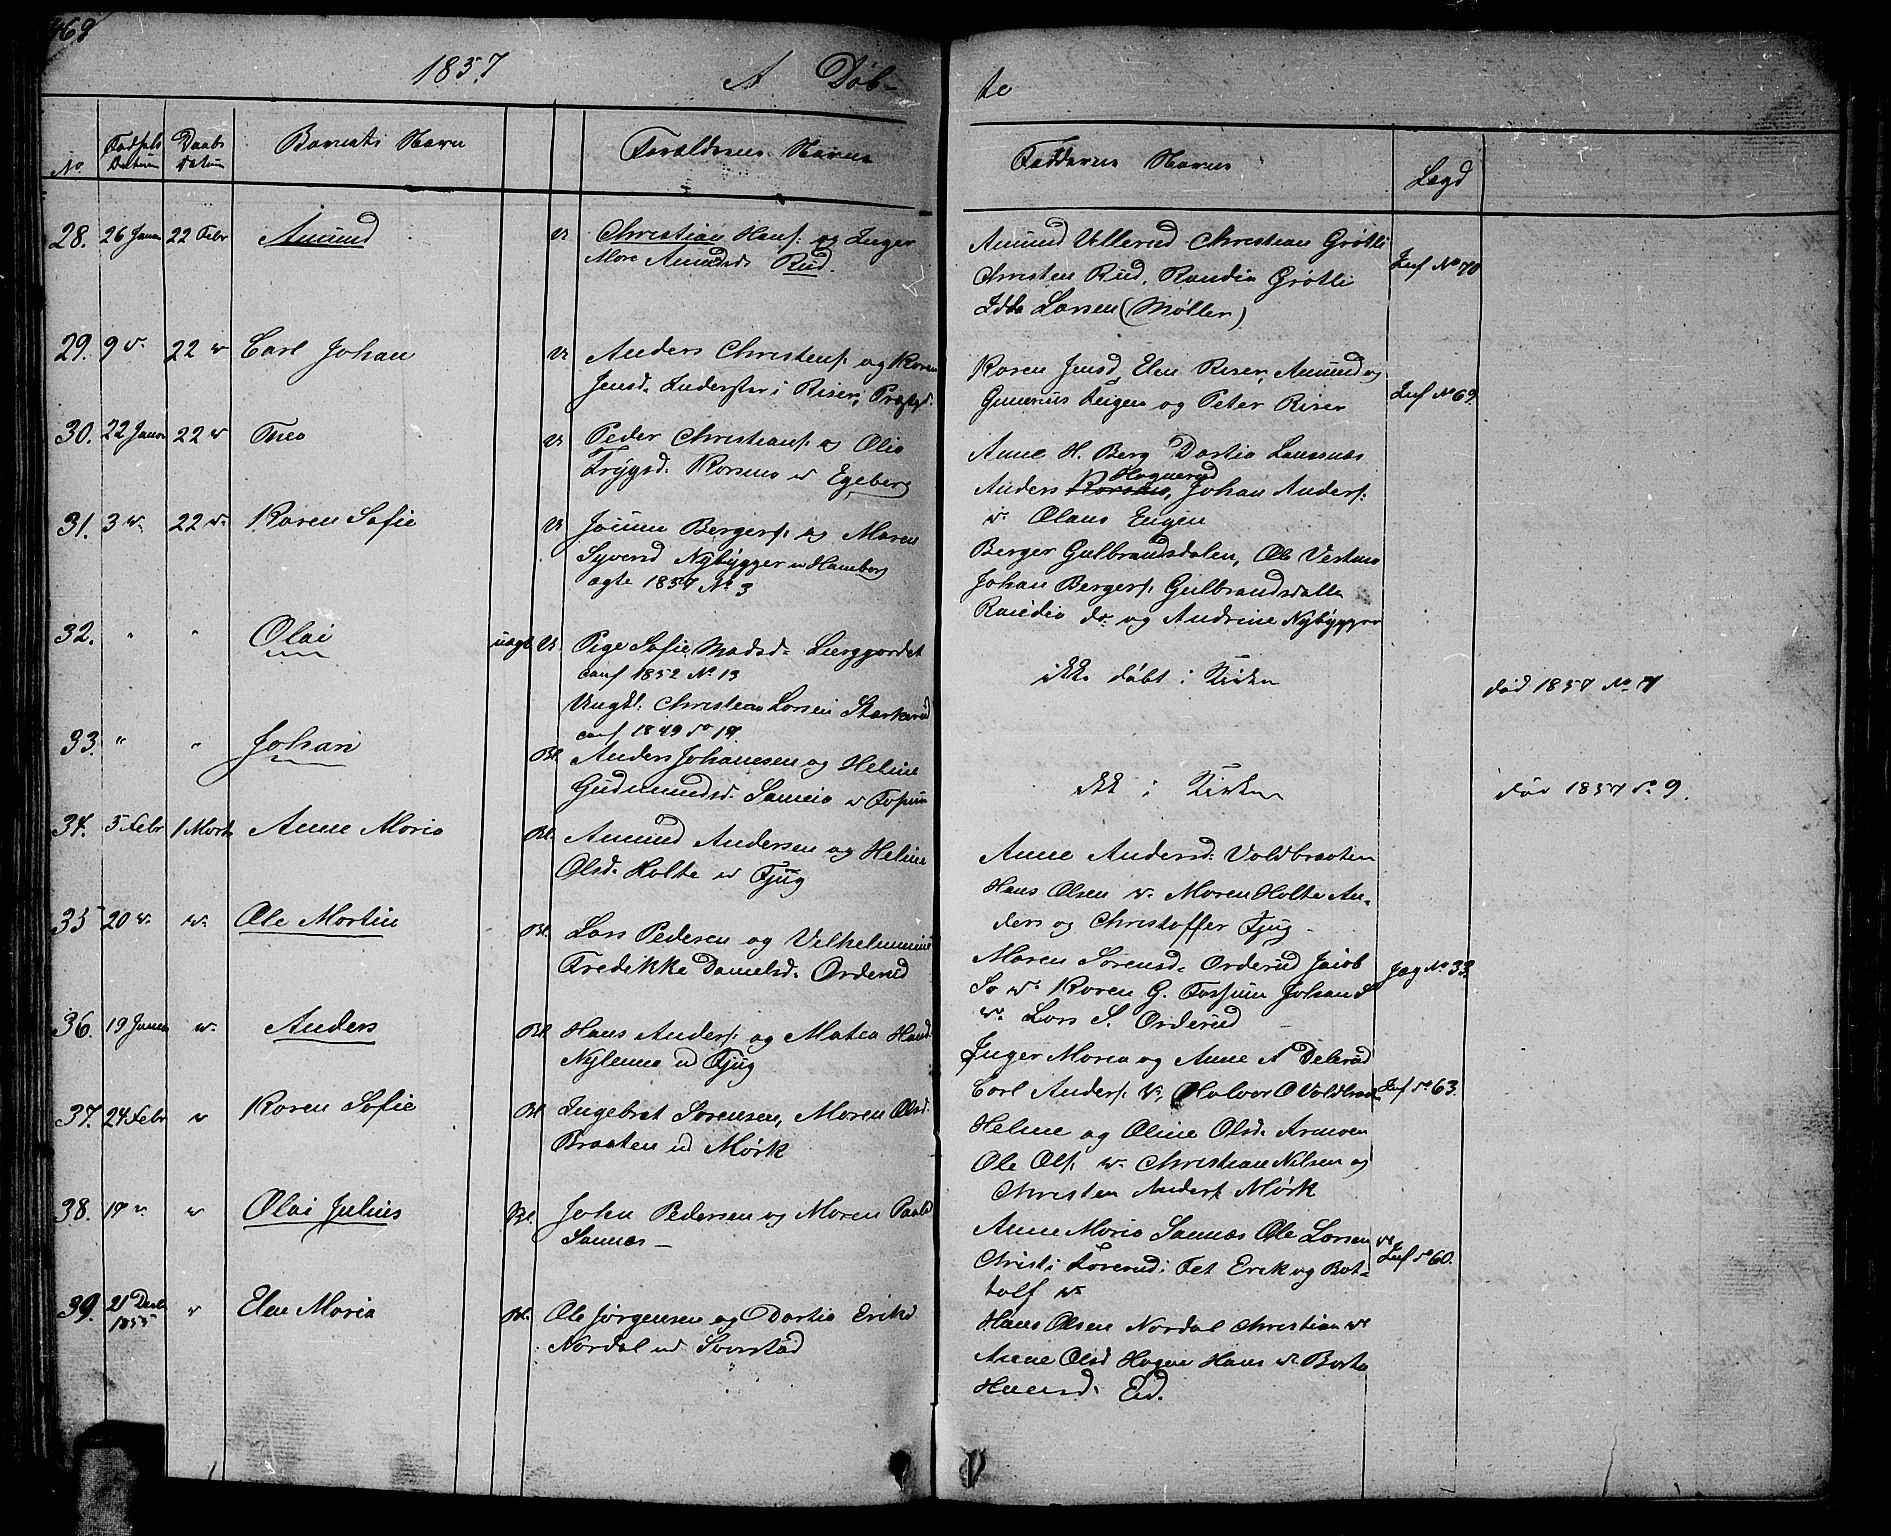 1857
A Döb-
te
No
Fødsels Datum
Daabs Datum
Barnets Navn
Forældrenes Navne
Faddernes Navne
Lægd
28. 26 Janu 22 Febr Amund U Christian Hans: og Inger
More Amundsd: Rud.
Amund Ullerud Christian Grøtli
Christen Rud, Randia Grøtli
Larsen (Møller)
Inf No 70
29. 9 22 Carl Johan U Anders Christens: og Karen
Jensd. Inderster i Riser,
Karen Jensd, Elen Riser, Amund og
Gunerius Eugen og Peter Riser
Inf No 69.
30. 22 Janu 22 Theo U Peder Christians: og Olia
Trygsd. Korsmo u Egeberg
Anne H. Berg Dortia
Anders Korsmo, Hognerud Johan Anders:
Olaus Engen
31. 3 22 Karen Sofie U Joinne Bergers: og Maren
Syversd Nybygger u Hamborg
ægte 1857 No 3
Berger Gulbrandsdalen, Ole
Johan Bergers: Gulbrandsdalen
Randia do. og Andrine Nybygger
32. " " Olai uægt U Pige Sofie Madsd.
conf 1852 No 13
Ungk: Christian Larsen Starkerud
conf 1849
ikke døbt i Kirken
død 1857 No 7
33. " " Johan Bl. Anders Johannesen og Heline
Gudmundsd. Sameia u Fossum
ikk i Kirken
død 1857 9.
34. 5 Febr 1 Marts Anne Maria Bl. Amund Andersen og Heline
Olsd. Holte u Fjug
Anne Andersd: Voldbraaten
Hans Olsen Maren Holte An-
ders og Christoffer Fjug
35 20 Ole Martin Bl. Lars Pedersen og Vilhelmine
Fredikke Danielsd. Orderud
Maren Sørensd. Orderud Jacob
So Karen G. Fossum Johan S
Lars S. Orderud
No 33.
36. 19 Janu Anders Bl. Hans Anders: og Matea Hansd.
Nylenna u Fjug
Inger Maria og Anne A Delerud
Carl Anders: Halvor O Voldbraaten
Inf 63.
37. 24 Febr Karen Sofie Bl. Ingebret Sørensen, Maren Olsd.
Braaten u Mørk
Heline og Oline Olsd. Armoen
Ole Ols: Christian Nilsen og
Christen Anders: Mørk
38. 14 Olai Julius Bl. John Pedersen og Maren Paalsd
Sannæs
Anne Maria Sannæs Ole Larsen
Christi Lørerud i Fet Erik og Bot-
tolf
Inf 60.
39. 21 Decb 1855 Elen Maria Bl. Ole Jørgensen og Dortia Eriksd
Nordal u Sverstad
Hans Olsen Nordal Christian
Anne Olsd Hagen Hans Berta
Hansd. Eid.